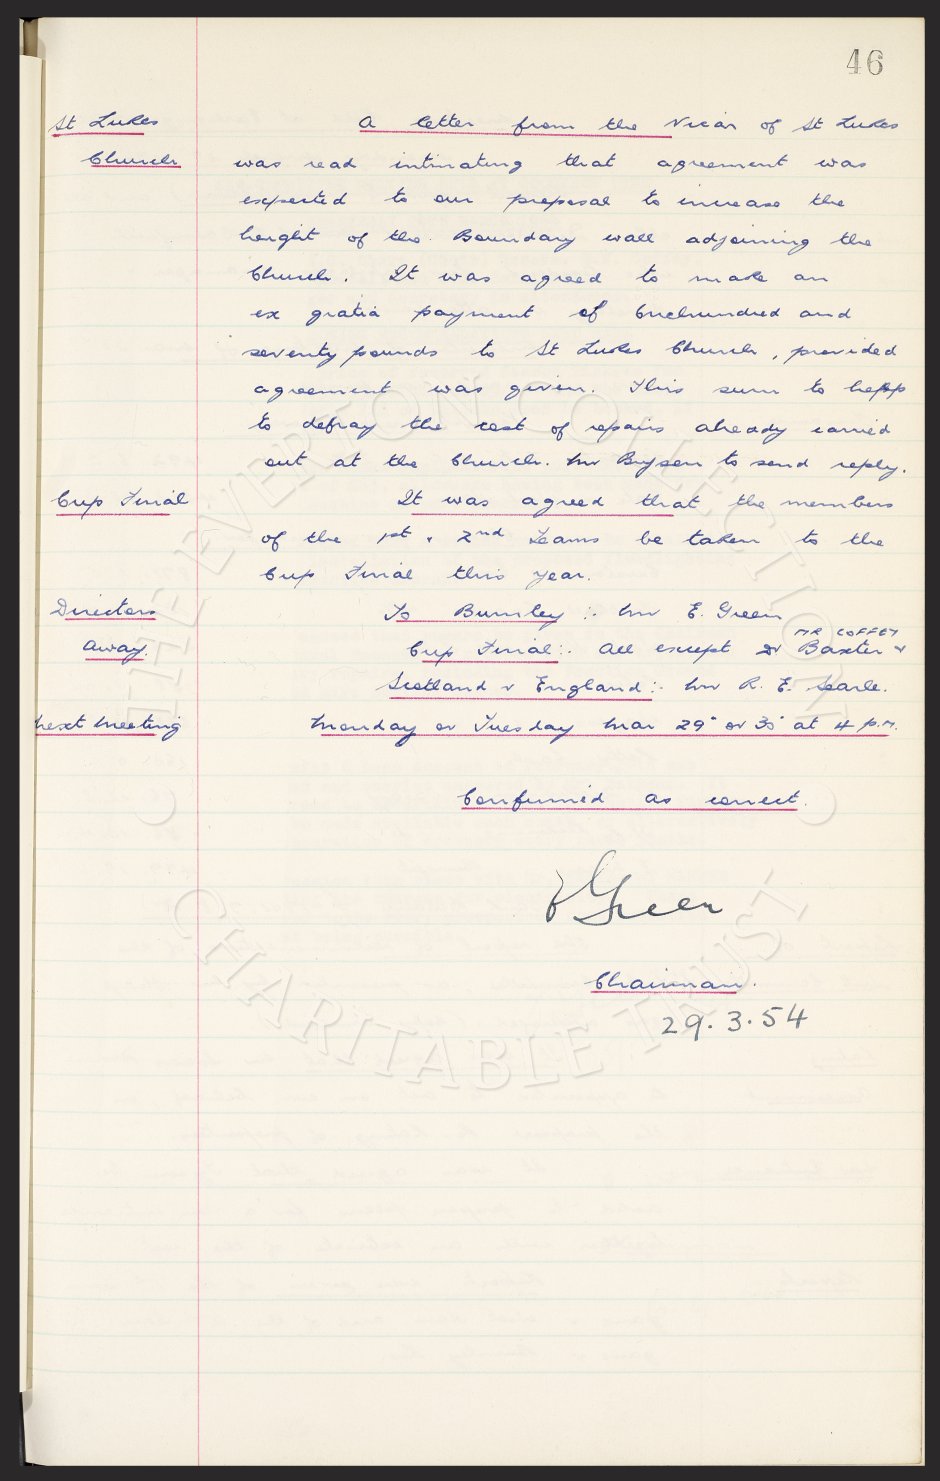 46
St Lukes A letter from the Vicar of St Lukes
Church was read intimating that agreement was
expected to our proposal to increase the
height of the Boundary wall adjoining the
Church. It was agreed to make an
ex gratia payment of Onehundred and
seventy pounds to St Lukes Church, provided
agreement was given. This sum to help
to defray the cost of repairs already carried
out at the Church. Mr Bryson to send reply.
Cup Final It was agreed that the members
of the 1st & 2nd Teams be taken to the
Cup Final this year.
Directors To Burnley :- Mr E. Green
MR COFFEY
Away. Cup Final :- All except Dr Baxter &
Scotland v England :- Mr R. E. Searle.
Next Meeting Monday or Tuesday Mar 29" or 30" at 4 p.m.
Confirmed as correct.
Green
Chairman.
29.3.54
THE EVERTON COLLECTION
CHARITABLE TRUST